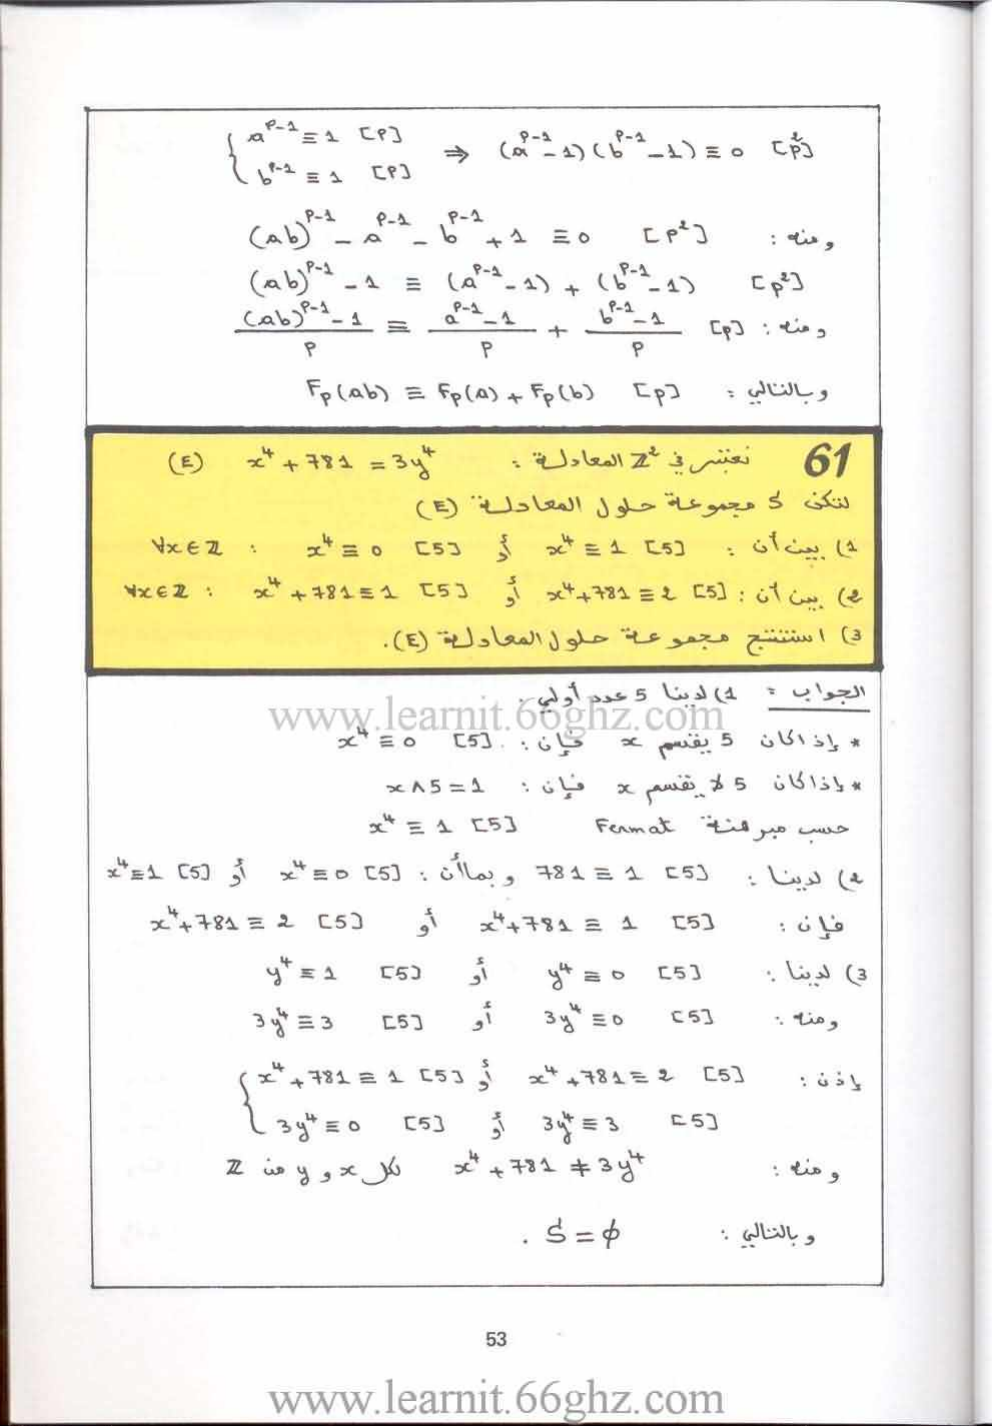 { a^{p-1} ≡ 1 [p]
{ b^{p-1} ≡ 1 [p] ⇒ (a^{p-1} - 1)(b^{p-1} - 1) ≡ 0 [p²]
ومنه : (ab)^{p-1} - a^{p-1} - b^{p-1} + 1 ≡ 0 [p²]
(ab)^{p-1} - 1 ≡ (a^{p-1} - 1) + (b^{p-1} - 1) [p²]
ومنه : ((ab)^{p-1} - 1)/p ≡ (a^{p-1} - 1)/p + (b^{p-1} - 1)/p [p]
وبالتالي : F_p(ab) ≡ F_p(a) + F_p(b) [p]
61 نعتبر في Z² المعادلة : x⁴ + 781 = 3y⁴ (E)
لتكن S مجموعة حلول المعادلة (E)
1) بين أن : x⁴ ≡ 1 [5] أو x⁴ ≡ 0 [5] : ∀x∈Z
2) بين أن : x⁴+781 ≡ 2 [5] أو x⁴+781 ≡ 1 [5] : ∀x∈Z
3) استنتج مجموعة حلول المعادلة (E).
الجواب : 1) لدينا 5 عدد أولي .
www.learnit.66ghz.com
* إذا كان 5 يقسم x فإن : x⁴ ≡ 0 [5] .
* إذا كان 5 لا يقسم x فإن : x∧5=1
حسب مبرهنة Fermat x⁴ ≡ 1 [5]
2) لدينا : 781 ≡ 1 [5] وبما أن : x⁴ ≡ 0 [5] أو x⁴≡1 [5]
فإن : x⁴+781 ≡ 1 [5] أو x⁴+781 ≡ 2 [5]
3) لدينا : y⁴ ≡ 0 [5] أو y⁴ ≡ 1 [5]
ومنه : 3y⁴ ≡ 0 [5] أو 3y⁴ ≡ 3 [5]
إذن : { x⁴+781 ≡ 1 [5] أو x⁴+781 ≡ 2 [5]
{ 3y⁴ ≡ 0 [5] أو 3y⁴ ≡ 3 [5]
ومنه : x⁴+781 ≠ 3y⁴ لكل x و y من Z
وبالتالي : S = ϕ .
53
www.learnit.66ghz.com